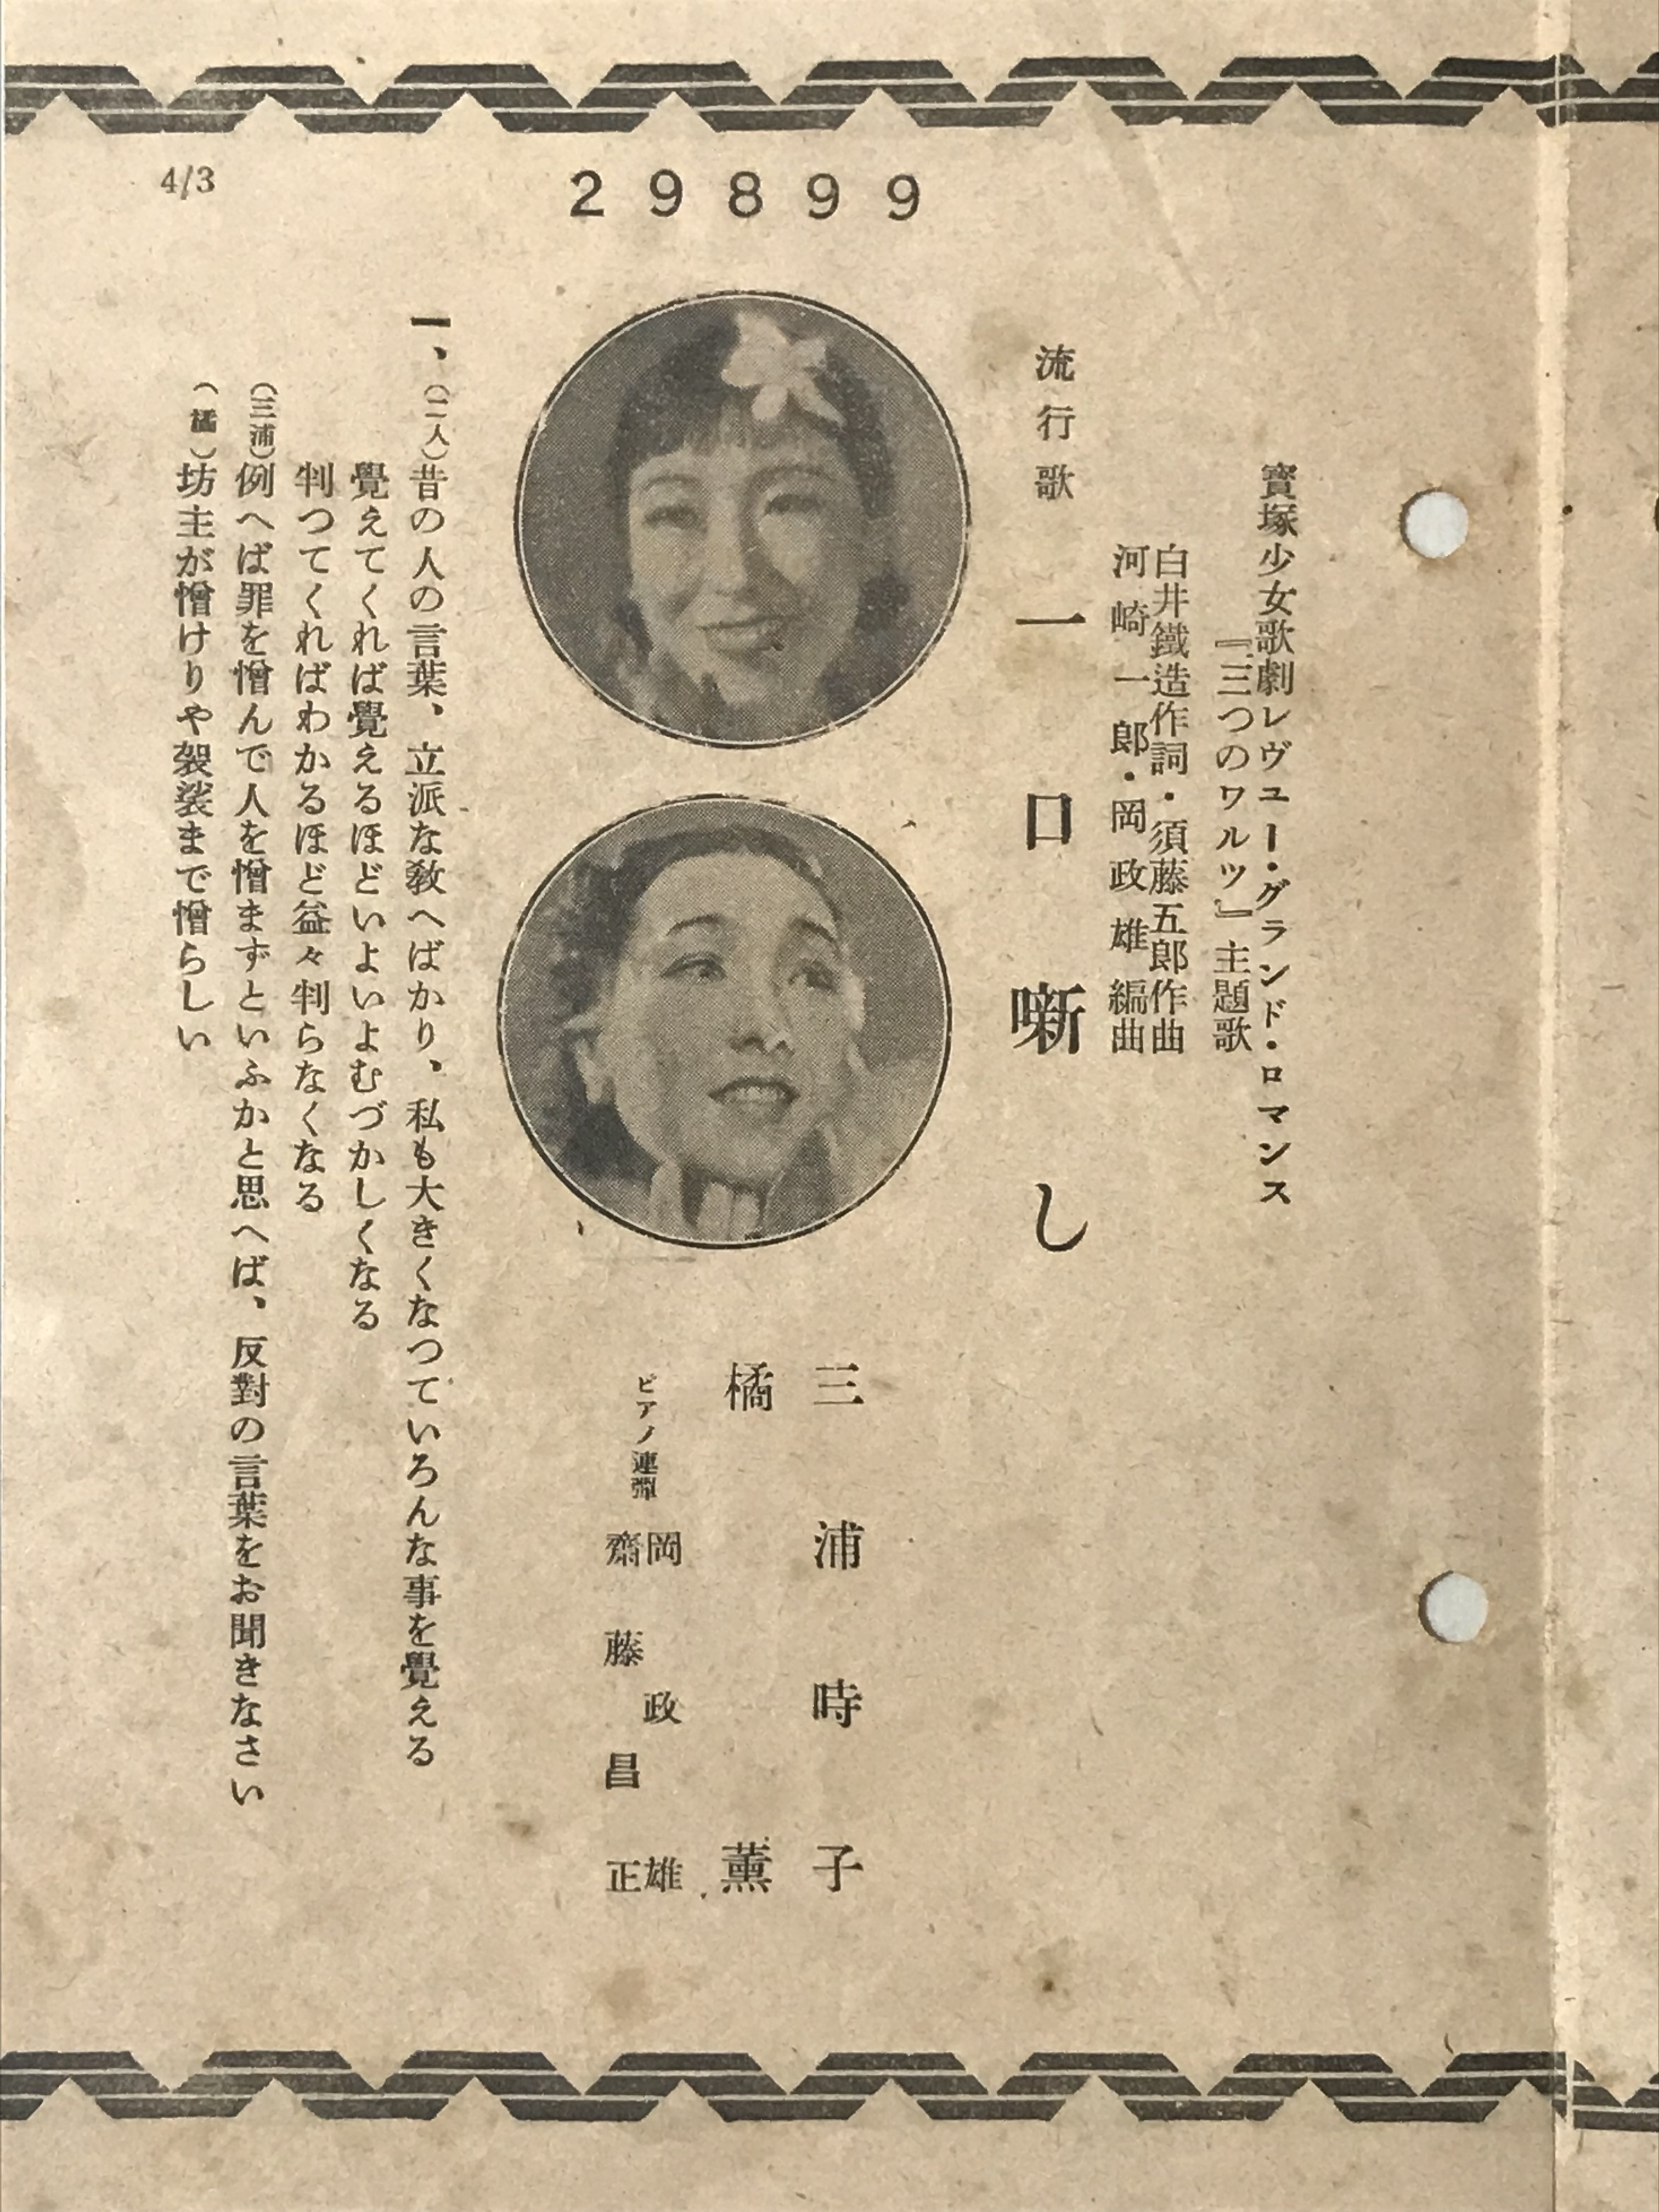 29899
4/3
寳塚少女歌劇レヴュー・グランド・ロマンス
『三つのワルツ』主題歌
白井鐵造作詞・須藤五郎作曲
河崎一郎・岡政雄編曲
流行歌 一口噺し
三浦時子
橘薫
ピアノ連彈 岡政雄
齋藤昌正
一、(二人)昔の人の言葉、立派な敎へばかり、私も大きくなつていろんな事を覺える
覺えてくれば覺えるほどいよいよむづかしくなる
判つてくればわかるほど益々判らなくなる
(三浦)例へば罪を憎んで人を憎まずといふかと思へば、反對の言葉をお聞きなさい
(橘)坊主が憎けりや袈裟まで憎らしい